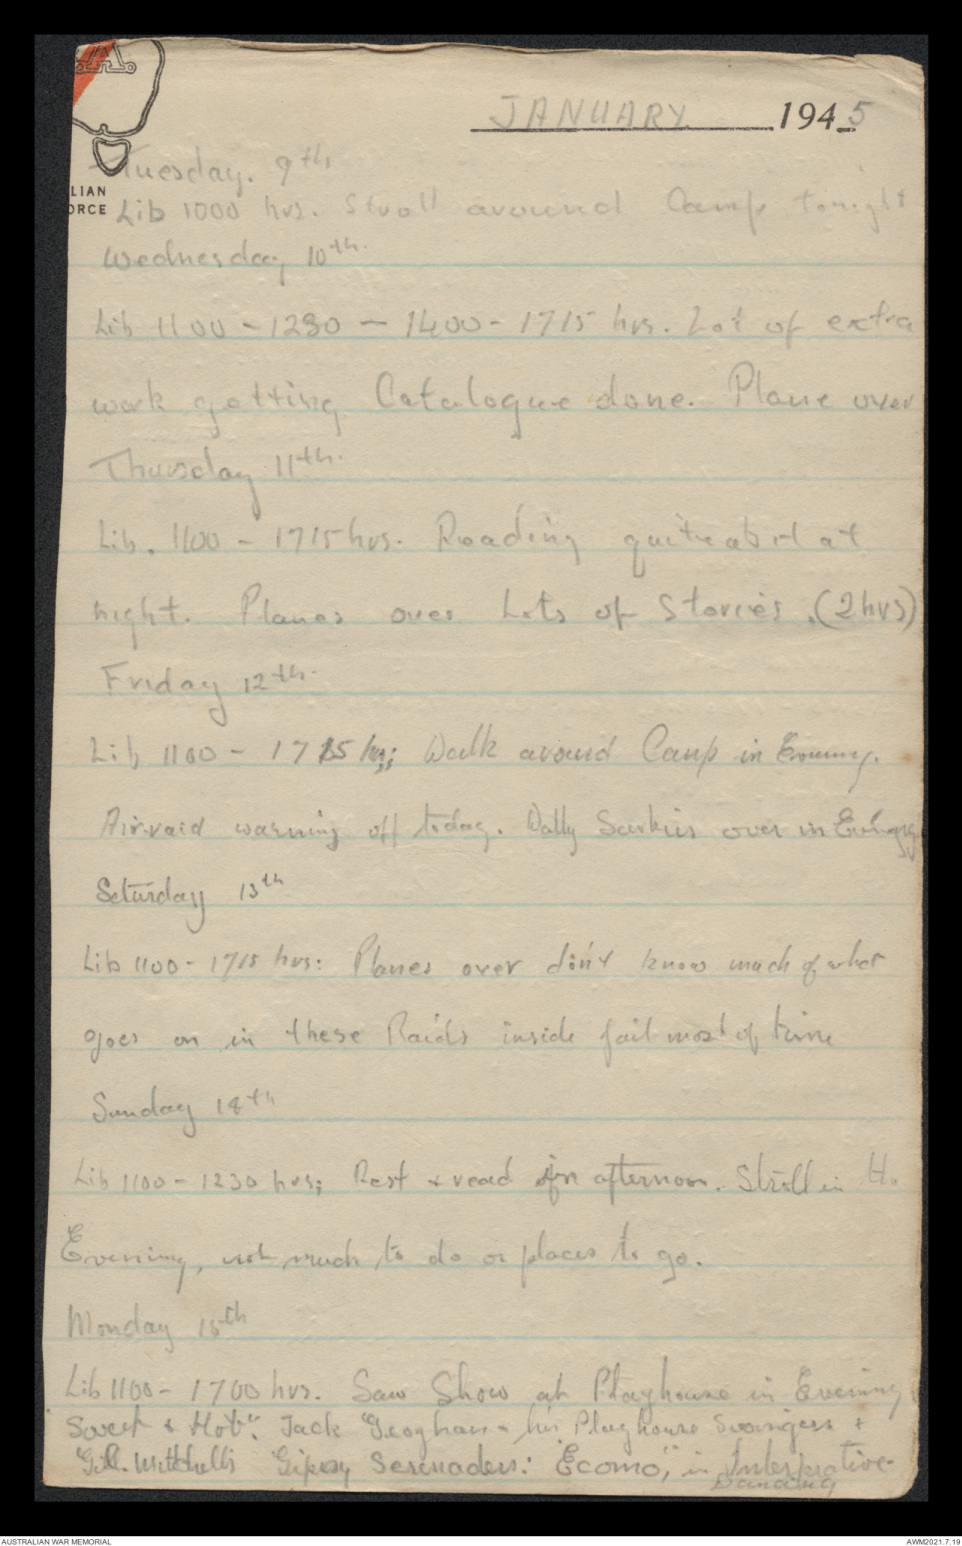 .A.
LIAN
ORCE
JANUARY 1945
Tuesday. 9th
Lib 1000 hrs. Stroll around Camp tonight
Wednesday 10th.
Lib 1100 - 1230 - 1400 - 1715 hrs. Lot of extra
work getting Catalogue done. Plane over
Thursday 11th.
Lib. 1100 - 1715 hrs. Reading quite a bit at
night. Planes over Lots of Stories. (2 hrs)
Friday 12th.
Lib 1100 - 1715 hrs; Walk around Camp in Evening.
Air raid warning off today. Wally over in Evening
Saturday 13th
Lib 1100 - 1715 hrs: Planes over don't know much of what
goes on in these Raids inside most of time
Sunday 14th
Lib 1100 - 1230 hrs; Rest & read in afternoon. Stroll in
Evening, not much to do or places to go.
Monday 15th
Lib 1100 - 1700 hrs. Saw Show at Playhouse in Evening
Sweet & Hot". Jack Geoghan & his Playhouse Swingers &
Gill. Mittchell's Gipsy Serenaders: "Ecomo," in Interprative
Dancing
AUSTRALIAN WAR MEMORIAL
AWM2021.7.19